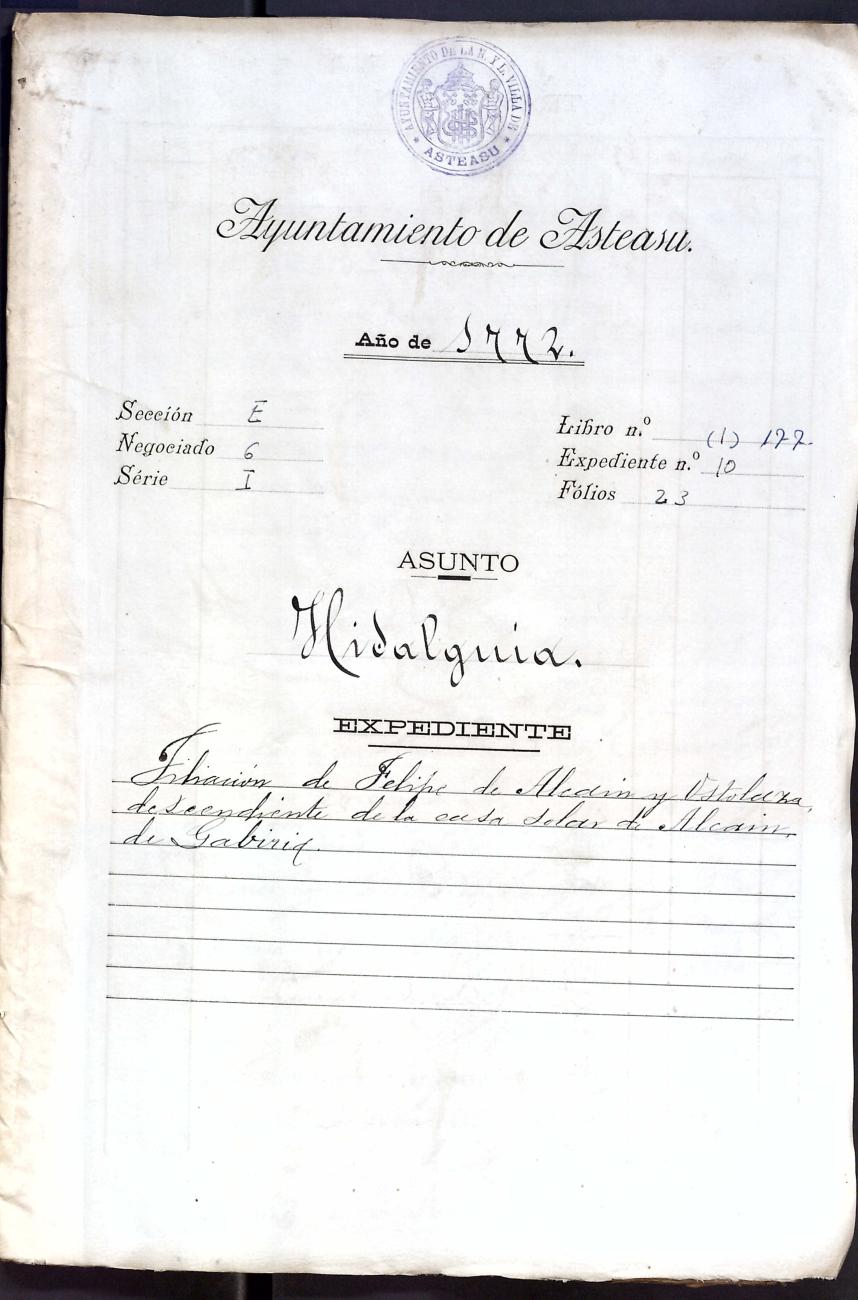 AYUNTAMIENTO DE LA N. Y L. VILLA DE
* ASTEASU *
Ayuntamiento de Asteasu.
Año de 1772.
Sección E
Negociado 6
Série I
Libro n.º (1) 177.
Expediente n.º 10
Fólios 23
ASUNTO
Hidalguia.
EXPEDIENTE
Filiación de Felipe de Alcain y Ostolaza,
descendiente de la casa solar de Alcain,
de Gabiria.